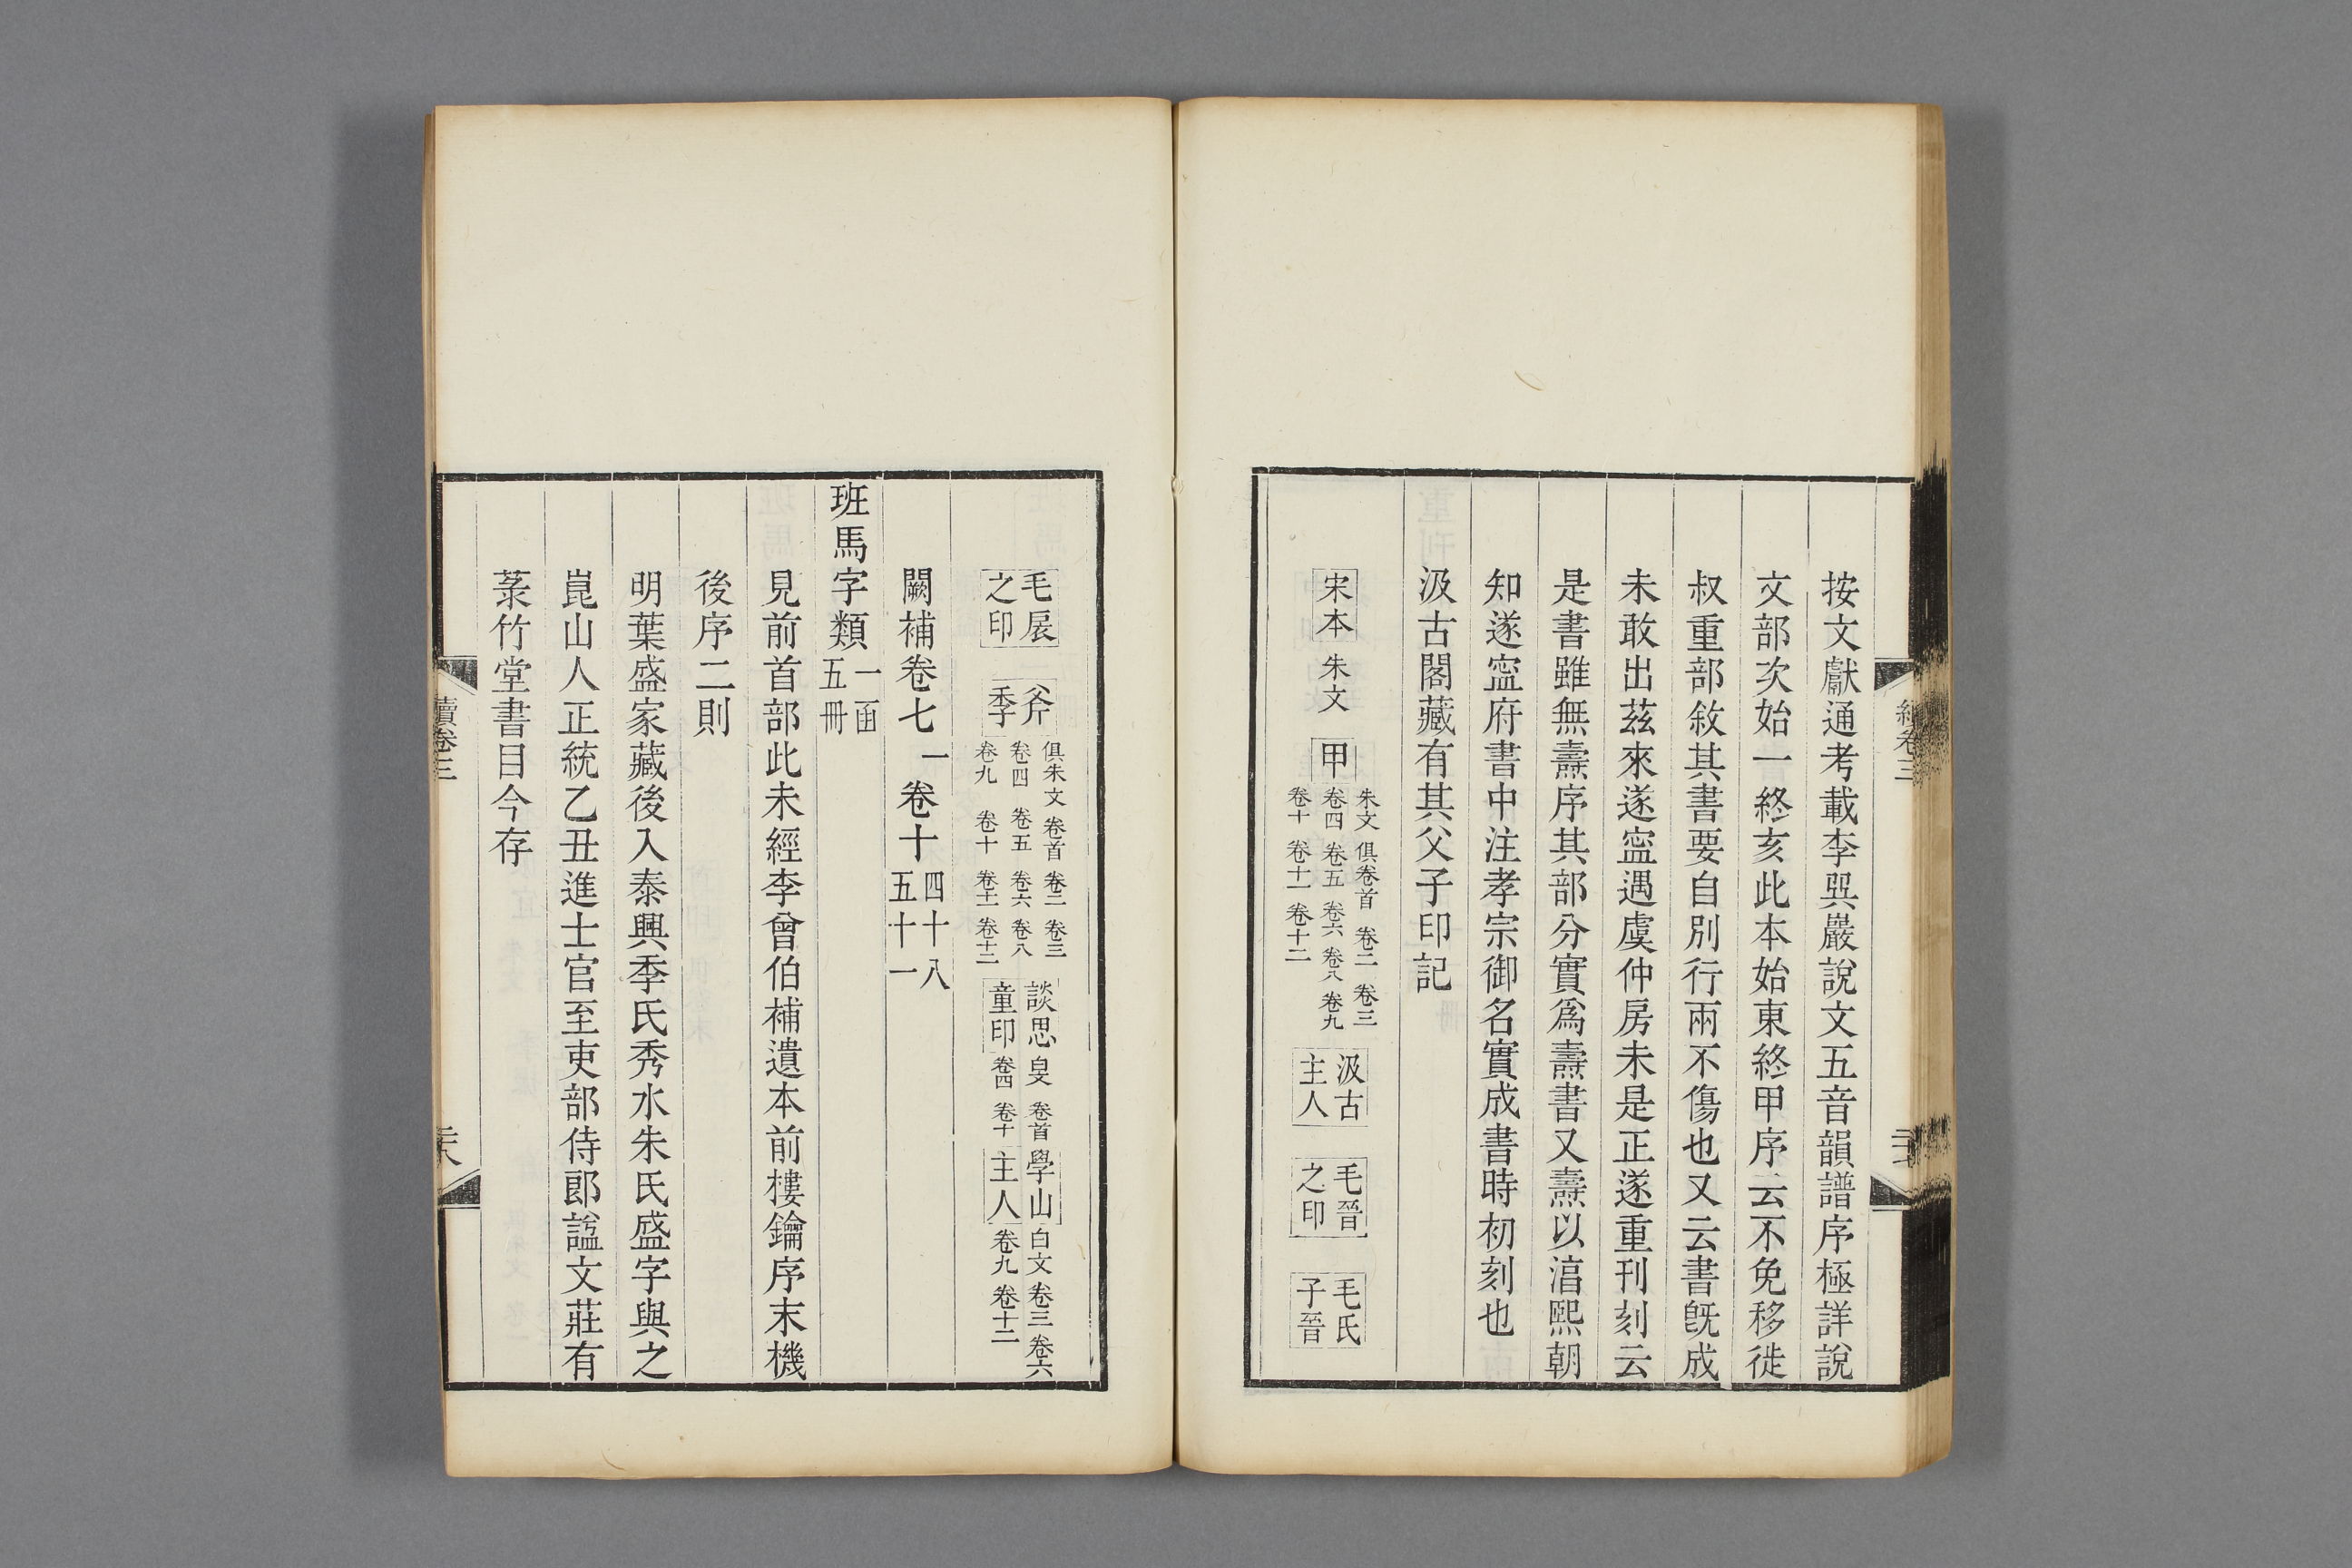 按文獻通考載李巽巖說文五音韻譜序極詳說
文部次始一終亥此本始東終甲序云不免移徙
叔重部敘其書要自別行兩不傷也又云書旣成
未敢出茲來遂寍遇虞仲房未是正遂重刊刻云
是書雖無燾序其部分實爲燾書又燾以湻熙朝
知遂寍府書中注孝宗御名實成書時初刻也
汲古閣藏有其父子印記
宋本 朱文 甲 朱文 俱卷首 卷二 卷三
卷四 卷五 卷六 卷八 卷九
卷十 卷十一 卷十二
汲古
主人
毛晉
之印
毛氏
子晉
續卷三
毛扆
之印
斧
季
俱朱文 卷首 卷二 卷三
卷四 卷五 卷六 卷八
卷九 卷十 卷十一 卷十二
談思
童印
卷首
卷四 卷十
學山
主人
白文 卷三 卷六
卷九 卷十二
闕補卷七 一 卷十 四十八
五十一
班馬字類 一函
五冊
見前首部此未經李曾伯補遺本前樓鑰序末機
後序二則
明葉盛家藏後入泰興季氏秀水朱氏盛字與之
崑山人正統乙丑進士官至吏部侍郎諡文莊有
菉竹堂書目今存
續卷三
二十八